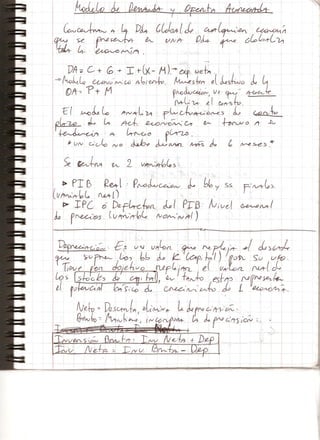 Modelo de Demanda y Oferta Agregada.
a la Dda Global de cualquier economía
que se presenta en una Dda que
la economía.
DA = C + G + I + (X - M) → exp neta
→ Modelo económico abierto. Muestra el destino de la
OA = P + M producción, ve que
el costo.
El modelo analiza fluctuaciones de corto
plazo de la act. económica en torno a la
tendencia a largo plazo.
* un ciclo no debe durar más de 6 meses *
Se centra en 2 variables
▷ PIB Real: Producción de bb y ss finales
(variable real)
▷ IPC o Deflactor del PIB Nivel general
de precios (variable nominal)
Depreciación: Es un valor que refleja el desgaste
que sufren los bb de K (capital) por su uso.
Tiene por objetivo reflejar el valor real de
los stocks de capital, en tanto estos representan
el potencial básico de crecimiento de la economía.
Neto = Descuenta, elimina la depreciación.
Bruto = Mantiene, incorpora la depreciación.
Inversión Bruta = Inv Neta + Dep
Inv Neta = Inv Bruta - Dep